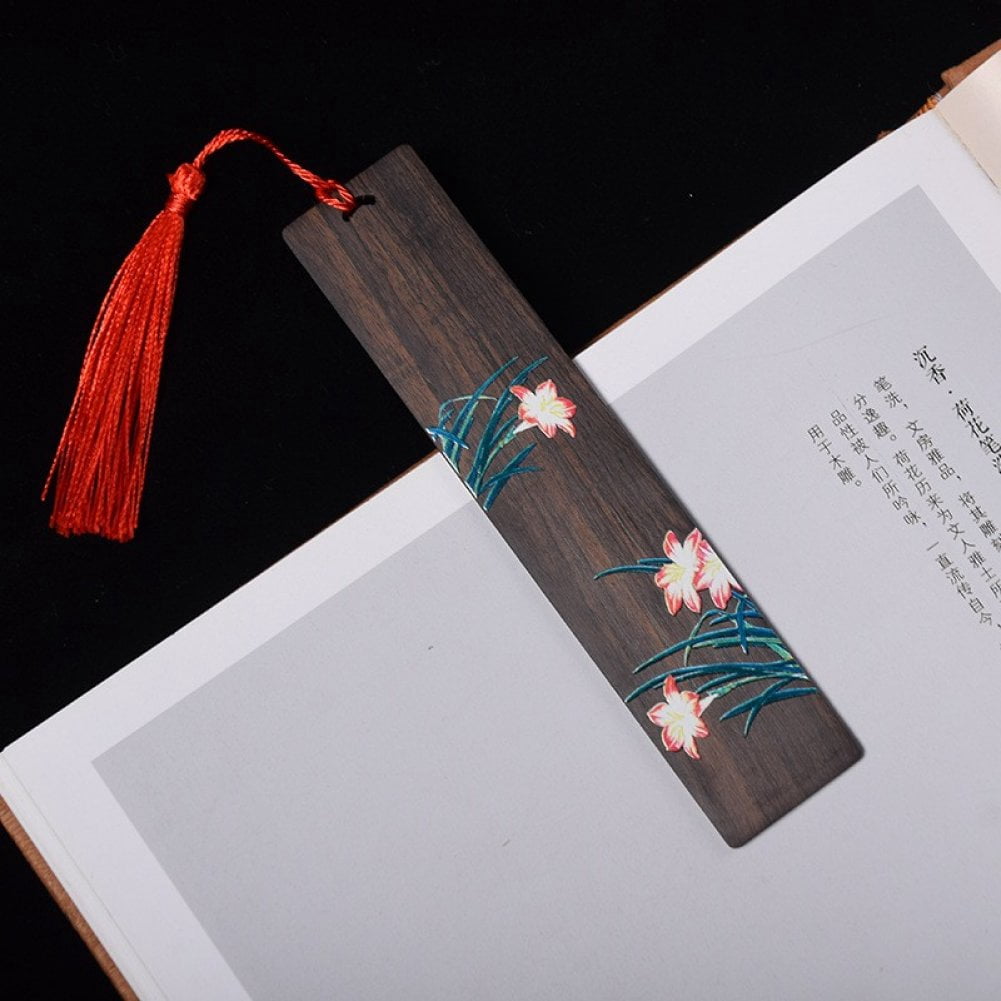 沉香·荷花笔洗
笔洗，文房雅品，将其雕刻
分逸趣。荷花历来为文人雅士所
品性被人们所吟咏，一直流传自今，
用于木雕。